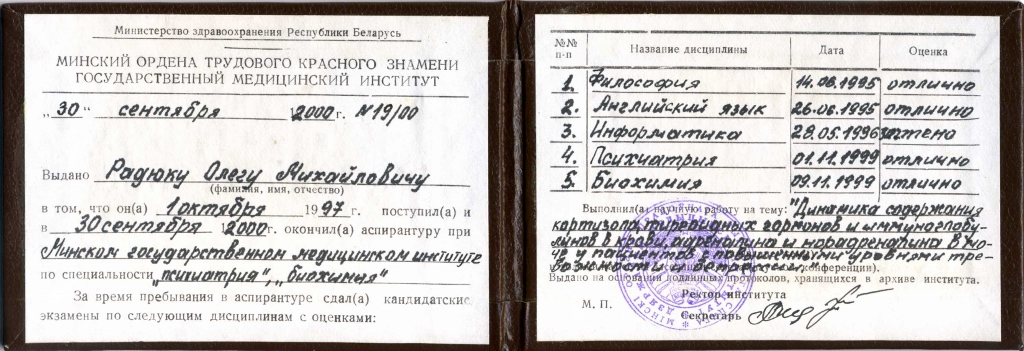 Министерство здравоохранения Республики Беларусь
МИНСКИЙ ОРДЕНА ТРУДОВОГО КРАСНОГО ЗНАМЕНИ
ГОСУДАРСТВЕННЫЙ МЕДИЦИНСКИЙ ИНСТИТУТ
„30" сентября 2000 г. №19/00
Выдано Радюку Олегу Михайловичу
(фамилия, имя, отчество)
в том, что он(а) 1 октября 1997 г. поступил(а) и
в 30 сентября 2000 г. окончил(а) аспирантуру при
Минском государственном медицинском институте
по специальности „психиатрия", „биохимия"
За время пребывания в аспирантуре сдал(а) кандидатские
экзамены по следующим дисциплинам с оценками:
№№ п-п Название дисциплины Дата Оценка
1. Философия 14.06.1995 отлично
2. Английский язык 26.06.1995 отлично
3. Информатика 28.05.1996 зачтено
4. Психиатрия 01.11.1999 отлично
5. Биохимия 09.11.1999 отлично
Выполнил(а) научную работу на тему: "Динамика содержания
кортизола, тиреоидных гормонов и иммуноглобу-
линов в крови, адреналина и норадреналина в мо-
че у пациентов с повышенными уровнями тре-
вожности и депрессии."
конференции).
Выдано на основании подлинных протоколов, хранящихся в архиве института.
Ректор института
М. П.
Секретарь